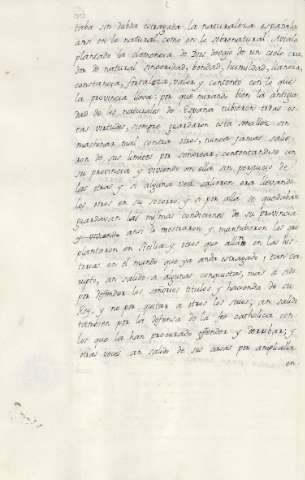 taba sin dubda estragada la naturaleza española
ansi en lo natural como en lo sobrenatural. Avíala
plantado la clemencia de Dios debajo de un cielo cria
dor de natural sinceridad, bondad, humildad, llaneza,
constancia, fortaleza, valor y contento con lo que
la provincia lleva: por que mirando bien la antigue
dad de los naturales de España tubieron todas es
tas virtudes, siempre guardaron esta
maquinar mal contra otros, nunca jamas salie
ron de sus limites por señorear, contentandose con
su provincia y viviendo en ella sin perjuycio de
las otras y si alguna vez salieron era llevando
los otros en su socorro, y si por alla se quedaban
guardavan las mismas condiciones de su provincia
ansi lo mostraron y mantubieron los que
plantaron en Sicilia y veces que allá en las his
torias en el mundo que ya anda estragado, i tan cor
rupto, an salido a algunas conquistas, mas a sido
por defender los señorios titulos y hacienda de su
Rey, y no por quitar a otros los suyos; an salido
tambien por la defensa de la fee catholica con
los que la han procurado offender y derribar; y
otras veces an salido de sus casas por ampliallo
en